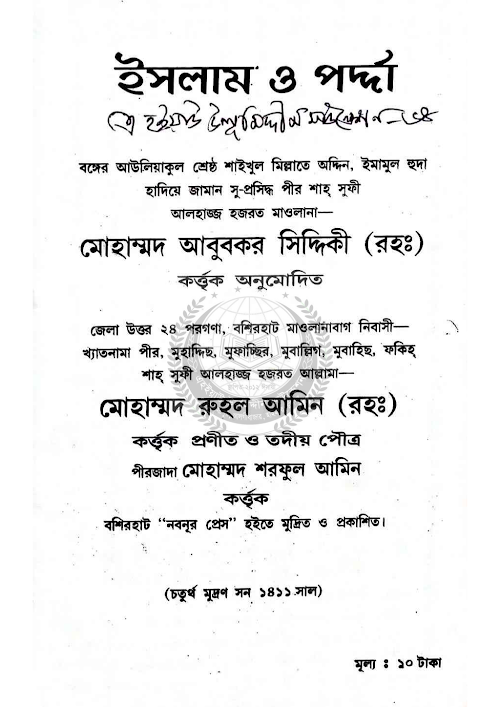 ইসলাম ও পর্দ্দা
বঙ্গের আউলিয়াকুল শ্রেষ্ঠ শাইখুল মিল্লাতে অদ্দিন, ইমামুল হুদা
হাদিয়ে জামান সু-প্রসিদ্ধ পীর শাহ্ সুফী
আলহাজ্জ হজরত মাওলানা—
মোহাম্মদ আবুবকর সিদ্দিকী (রহঃ)
কর্ত্তৃক অনুমোদিত
জেলা উত্তর ২৪ পরগণা, বশিরহাট মাওলানাবাগ নিবাসী—
খ্যাতনামা পীর, মুহাদ্দিছ, মুফাচ্ছির, মুবাল্লিগ, মুবাহিছ, ফকিহ্
শাহ্ সুফী আলহাজ্জ হজরত আল্লামা—
মোহাম্মদ রুহল আমিন (রহঃ)
কর্ত্তৃক প্রণীত ও তদীয় পৌত্র
পীরজাদা মোহাম্মদ শরফুল আমিন
কর্ত্তৃক
বশিরহাট "নবনূর প্রেস" হইতে মুদ্রিত ও প্রকাশিত।
(চতুর্থ মুদ্রণ সন ১৪১১ সাল)
মূল্য : ২০ টাকা